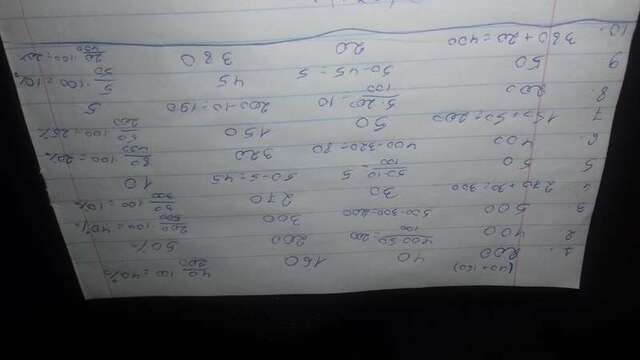 (40+160)
1. 200 40 160 40/200 · 100 = 40%
2 400 400·50/100 = 200 200 50%
3 500 500-300=200 300 200/500 100 = 40%
4 270+30=300 30 270 30/300 · 100 = 10%
5 50 50·10/100 = 5 50-5=45 10
6. 400 400-320=80 320 80/400 · 100 = 20%
7 150+50=200 50 150 50/200 100 = 25%
8. 200 5·200/100 = 10 200-10=190 5
9 50 50-45=5 45 5/50 · 100 = 10%
10. 380+20=400 20 380 20/400 100 = 20%